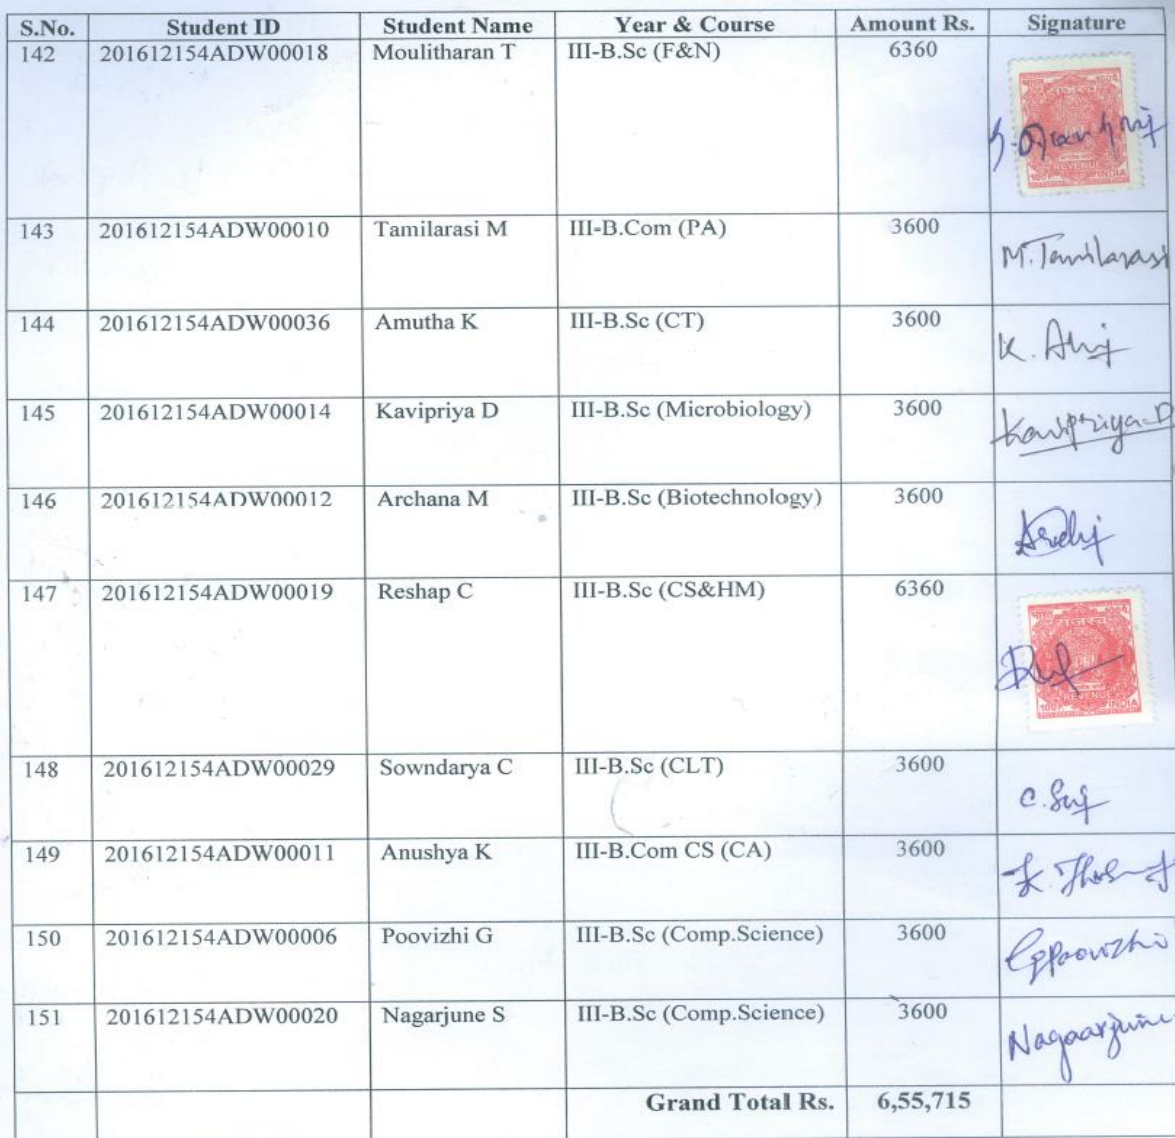 S.No. Student ID Student Name Year & Course Amount Rs. Signature
142 201612154ADW00018 Moulitharan T III-B.Sc (F&N) 6360
REVENUE
INDIA
143 201612154ADW00010 Tamilarasi M III-B.Com (PA) 3600
M. Tamilarasi
144 201612154ADW00036 Amutha K III-B.Sc (CT) 3600
K.
145 201612154ADW00014 Kavipriya D III-B.Sc (Microbiology) 3600
Kavipriya-D
146 201612154ADW00012 Archana M III-B.Sc (Biotechnology) 3600
147 201612154ADW00019 Reshap C III-B.Sc (CS&HM) 6360
भारत
राजस्व
REVENUE
INDIA
148 201612154ADW00029 Sowndarya C III-B.Sc (CLT) 3600
C.
149 201612154ADW00011 Anushya K III-B.Com CS (CA) 3600
K.
150 201612154ADW00006 Poovizhi G III-B.Sc (Comp.Science) 3600
151 201612154ADW00020 Nagarjune S III-B.Sc (Comp.Science) 3600
Nagaarjune
Grand Total Rs. 6,55,715